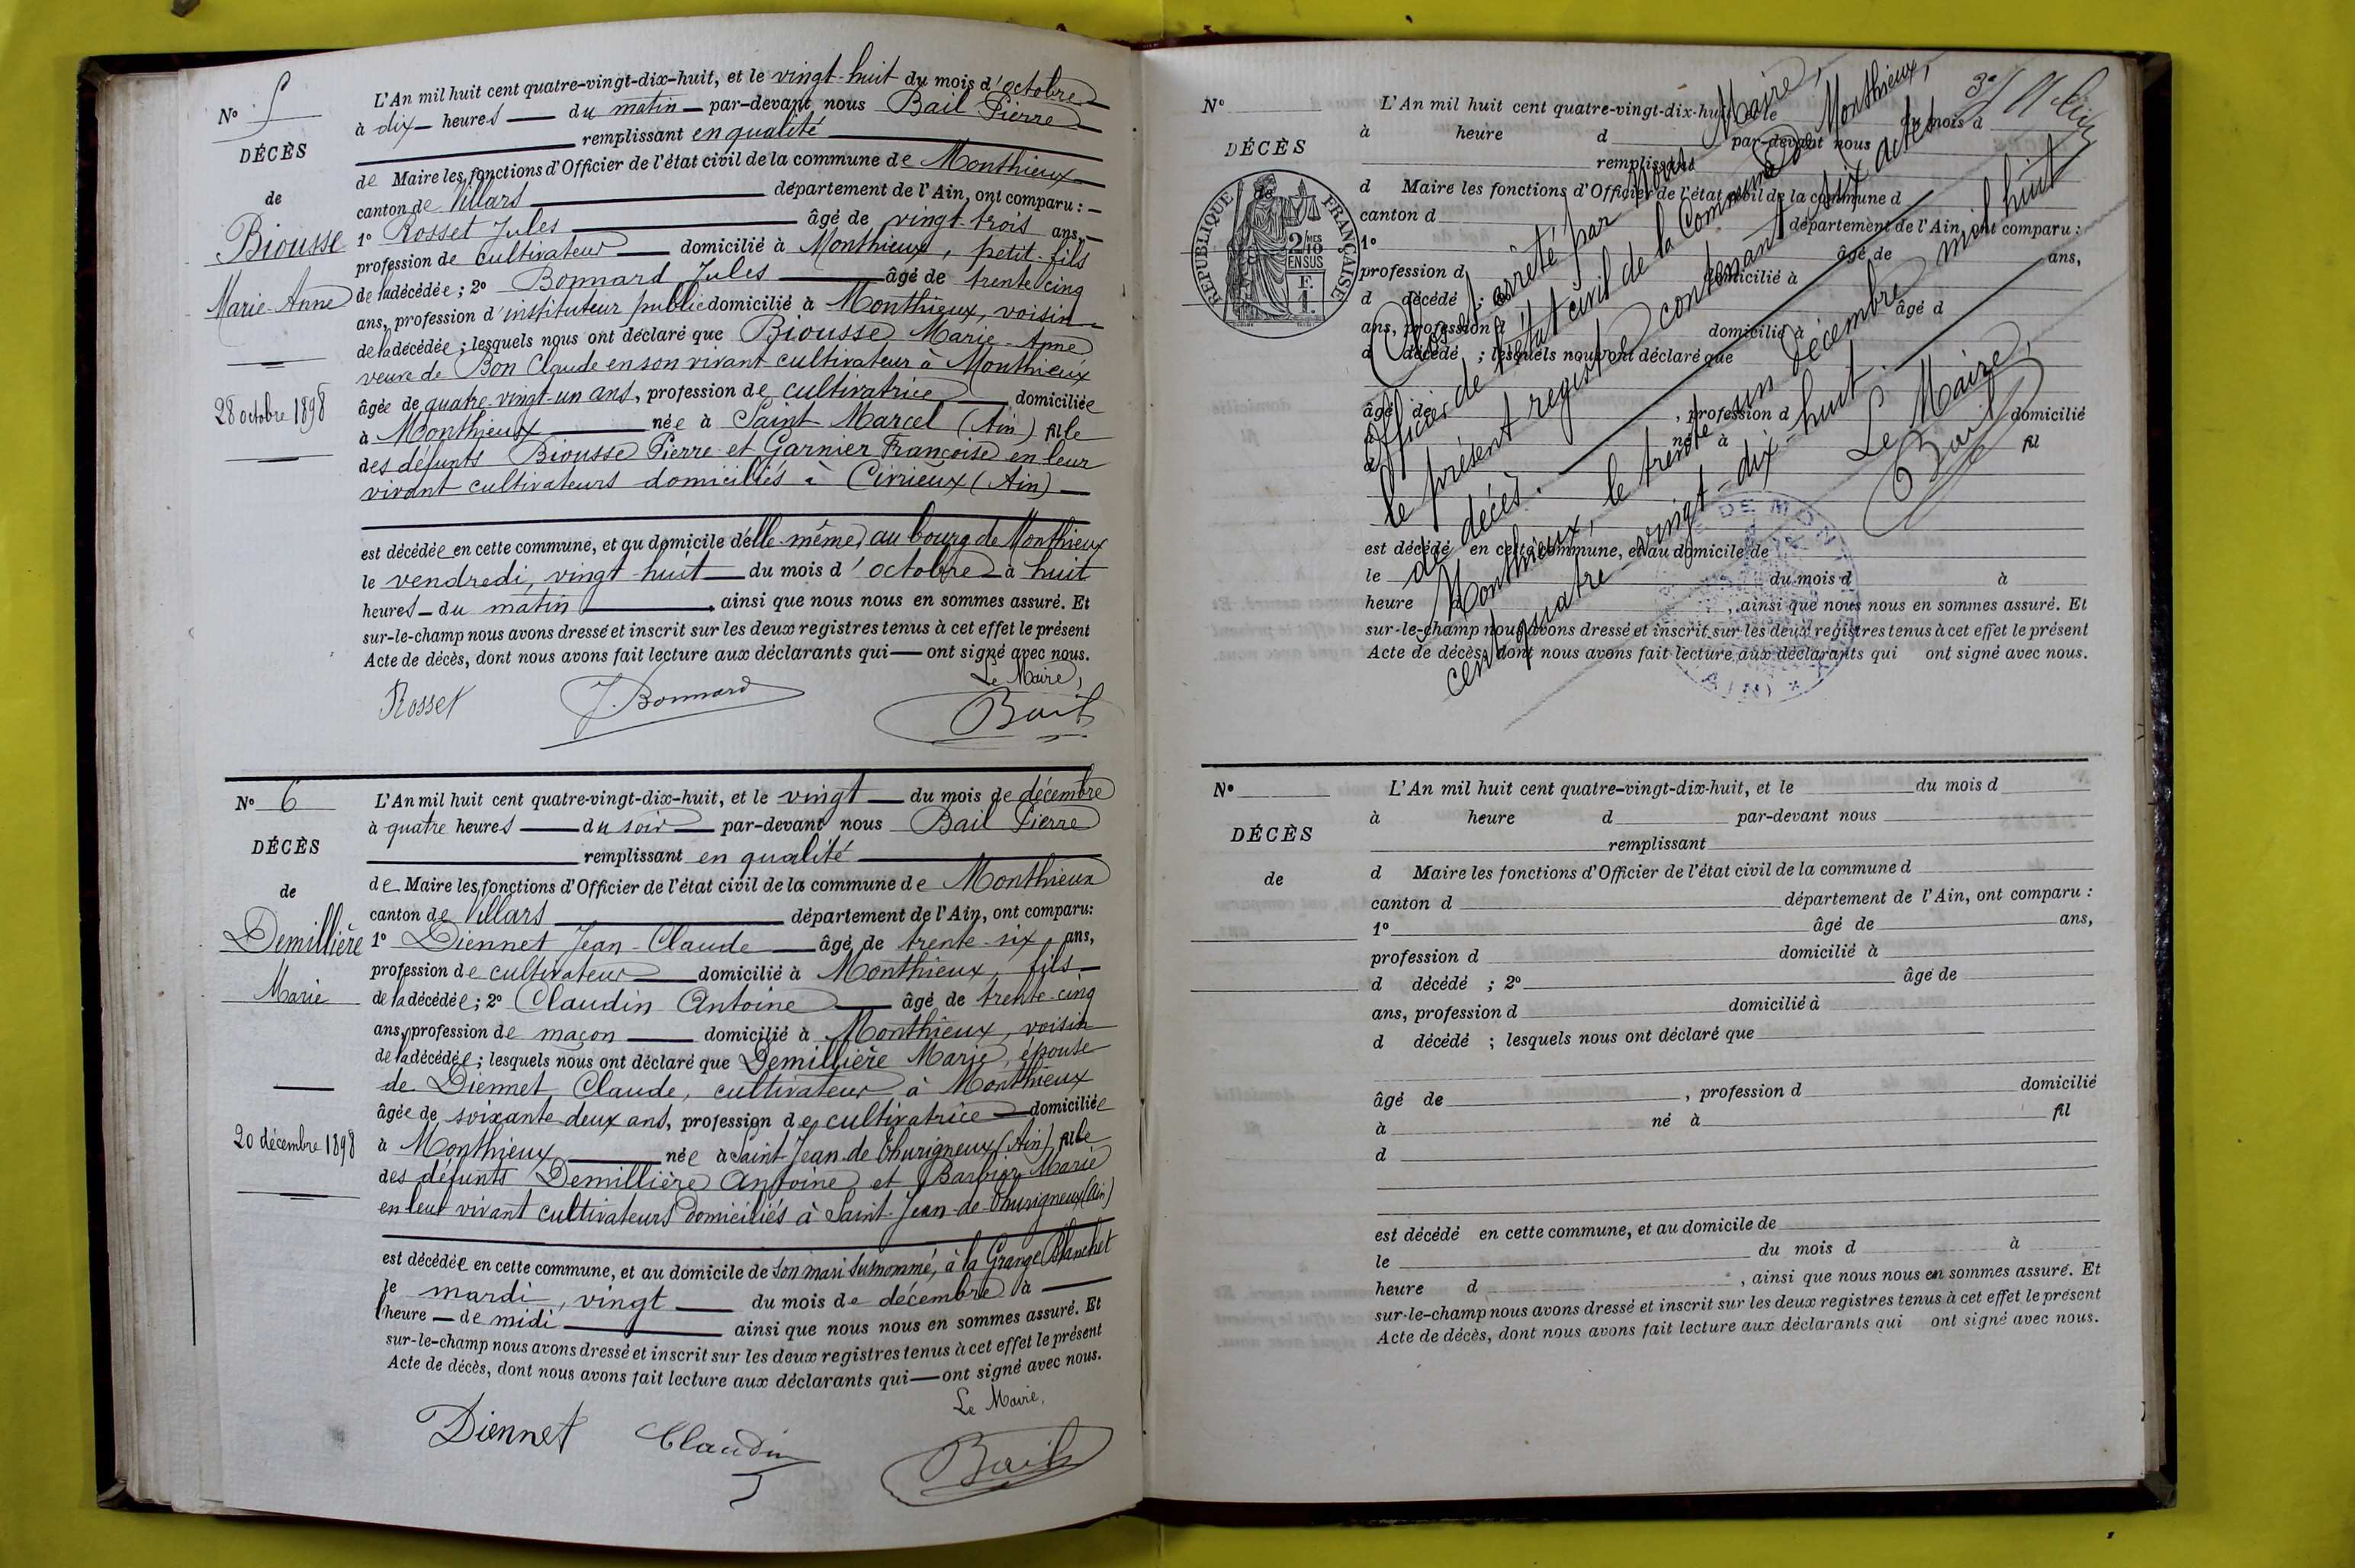 N° 5
DÉCÈS
de
Biousse
Marie-Anne
28 octobre 1898
L'An mil huit cent quatre-vingt-dix-huit, et le vingt-huit du mois d'octobre
à dix heures du matin par-devant nous Bail Pierre
remplissant en qualité
de Maire les fonctions d'Officier de l'état civil de la commune de Monthieux
canton de Villars département de l'Ain, ont comparu :
1° Rosset Jules âgé de vingt-trois ans,
profession de cultivateur domicilié à Monthieux, petit-fils
de la décédée ; 2° Bonnard Jules âgé de trente cinq
ans, profession d'instituteur public domicilié à Monthieux, voisin
de la décédée ; lesquels nous ont déclaré que Biousse Marie-Anne
veuve de Bon Claude en son vivant cultivateur à Monthieux
âgée de quatre-vingt-un ans, profession de cultivatrice domiciliée
à Monthieux née à Saint Marcel (Ain) fille
des défunts Biousse Pierre et Garnier Françoise en leur
vivant cultivateurs domiciliés à Civrieux (Ain)
est décédée en cette commune, et au domicile d'elle-même, au bourg de Monthieux
le vendredi, vingt-huit du mois d'octobre à huit
heures du matin, ainsi que nous nous en sommes assuré. Et
sur-le-champ nous avons dressé et inscrit sur les deux registres tenus à cet effet le présent
Acte de décès, dont nous avons fait lecture aux déclarants qui ont signé avec nous.
Le Maire,
Rosset J. Bonnard Bail
N° 6
DÉCÈS
de
Demillière
Marie
20 décembre 1898
L'An mil huit cent quatre-vingt-dix-huit, et le vingt du mois de décembre
à quatre heures du soir par-devant nous Bail Pierre
remplissant en qualité
de Maire les fonctions d'Officier de l'état civil de la commune de Monthieux
canton de Villars département de l'Ain, ont comparu:
1° Diennet Jean-Claude âgé de trente-six ans,
profession de cultivateur domicilié à Monthieux, fils
de la décédée ; 2° Claudin Antoine âgé de trente-cinq
ans, profession de maçon domicilié à Monthieux, voisin
de la décédée ; lesquels nous ont déclaré que Demillière Marie, épouse
de Diennet Claude, cultivateur à Monthieux
âgée de soixante deux ans, profession de cultivatrice domiciliée
à Monthieux née à Saint-Jean-de-Thurigneux (Ain) fille
des défunts Demillière Antoine et Barbier Marie
en leur vivant cultivateurs domiciliés à Saint-Jean-de-Thurigneux (Ain)
est décédée en cette commune, et au domicile de son mari susnommé, à la Grange Blanchet
le mardi, vingt du mois de décembre à
l'heure de midi ainsi que nous nous en sommes assuré. Et
sur-le-champ nous avons dressé et inscrit sur les deux registres tenus à cet effet le présent
Acte de décès, dont nous avons fait lecture aux déclarants qui ont signé avec nous.
Le Maire,
Diennet Claudin Bail
N°
DÉCÈS
de
RÉPUBLIQUE FRANÇAISE
2/10 MES
EN SUS
F.
1.
L'An mil huit cent quatre-vingt-dix-huit, et le du mois d
à heure d par-devant nous
remplissant
d Maire les fonctions d'Officier de l'état civil de la commune d
canton d département de l'Ain, ont comparu :
1° âgé de ans,
profession d domicilié à
d décédé ; 2° âgé d
ans, profession d domicilié à
d décédé ; lesquels nous ont déclaré que
âgé de , profession d domicilié
à né à fil
d
est décédé en cette commune, et au domicile de
le du mois d à
heure d , ainsi que nous nous en sommes assuré. Et
sur-le-champ nous avons dressé et inscrit sur les deux registres tenus à cet effet le présent
Acte de décès, dont nous avons fait lecture aux déclarants qui ont signé avec nous.
Clos et arrêté par nous Maire,
officier de l'état civil de la Commune de Monthieux,
le présent registre contenant six actes
de décès.
Monthieux, le trente un décembre mil huit
cent quatre-vingt-dix-huit.
Le Maire,
Bail
N°
DÉCÈS
de
L'An mil huit cent quatre-vingt-dix-huit, et le du mois d
à heure d par-devant nous
remplissant
d Maire les fonctions d'Officier de l'état civil de la commune d
canton d département de l'Ain, ont comparu :
1° âgé de ans,
profession d domicilié à
d décédé ; 2° âgé de
ans, profession d domicilié à
d décédé ; lesquels nous ont déclaré que
âgé de , profession d domicilié
à né à fil
d
est décédé en cette commune, et au domicile de
le du mois d à
heure d , ainsi que nous nous en sommes assuré. Et
sur-le-champ nous avons dressé et inscrit sur les deux registres tenus à cet effet le présent
Acte de décès, dont nous avons fait lecture aux déclarants qui ont signé avec nous.